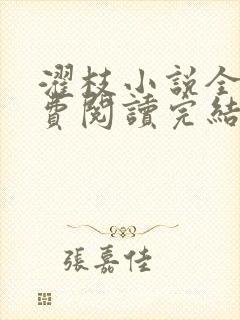 濯枝小說全
費閱讀完結
張嘉佳